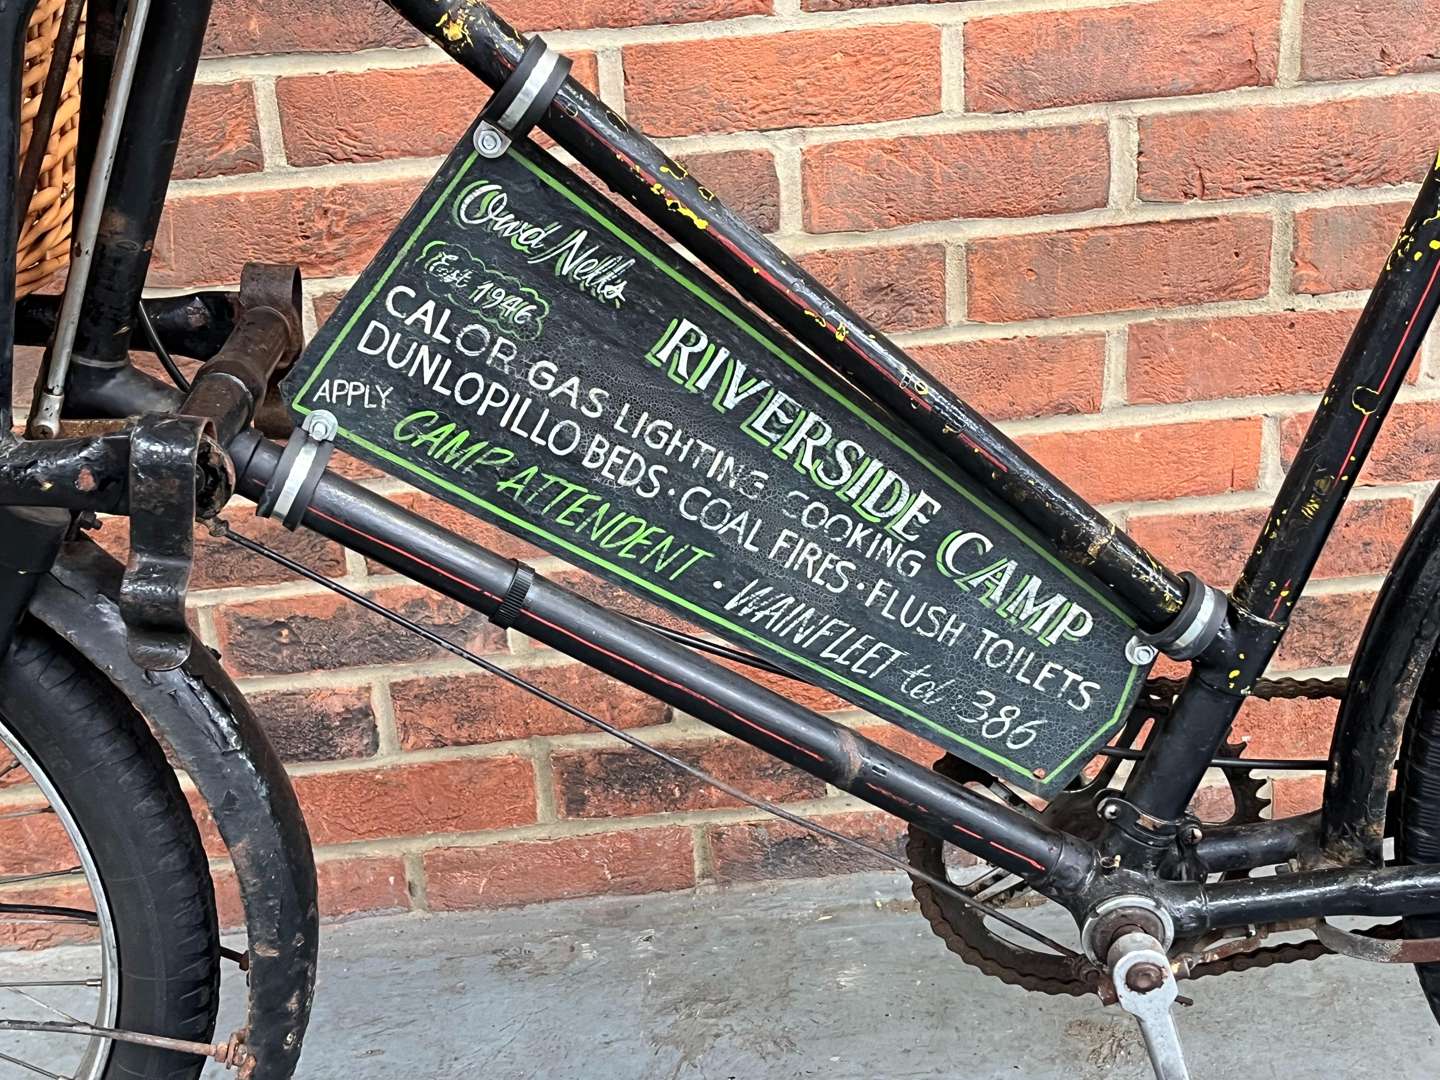 Orvd Nell's
Est 1946
RIVERSIDE CAMP
CALOR-GAS LIGHTING COOKING
DUNLOPILLO BEDS · COAL FIRES · FLUSH TOILETS
APPLY CAMP-ATTENDENT · WAINFLEET tel 386